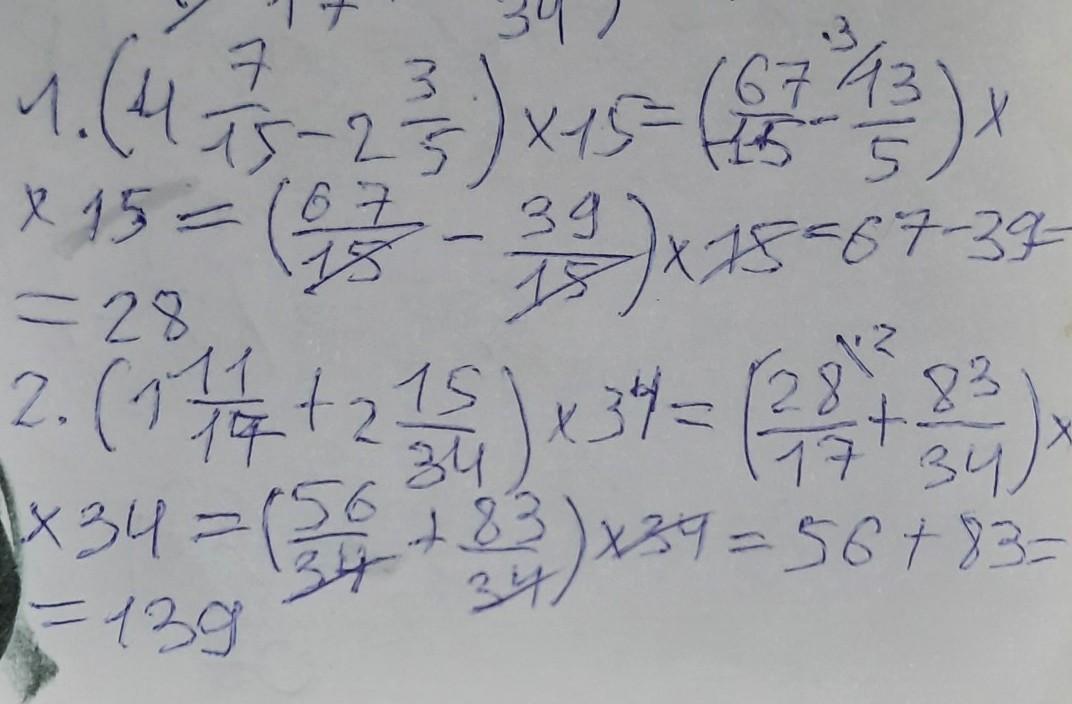 17 34)
1. (4 7/15 - 2 3/5) × 15 = (67/15 - 13/5 ³) ×
× 15 = (67/15 - 39/15) × 15 = 67 - 39 =
= 28
2. (1 11/17 + 2 15/34) × 34 = (28/17 ² + 83/34) ×
× 34 = (56/34 + 83/34) × 34 = 56 + 83 =
= 139